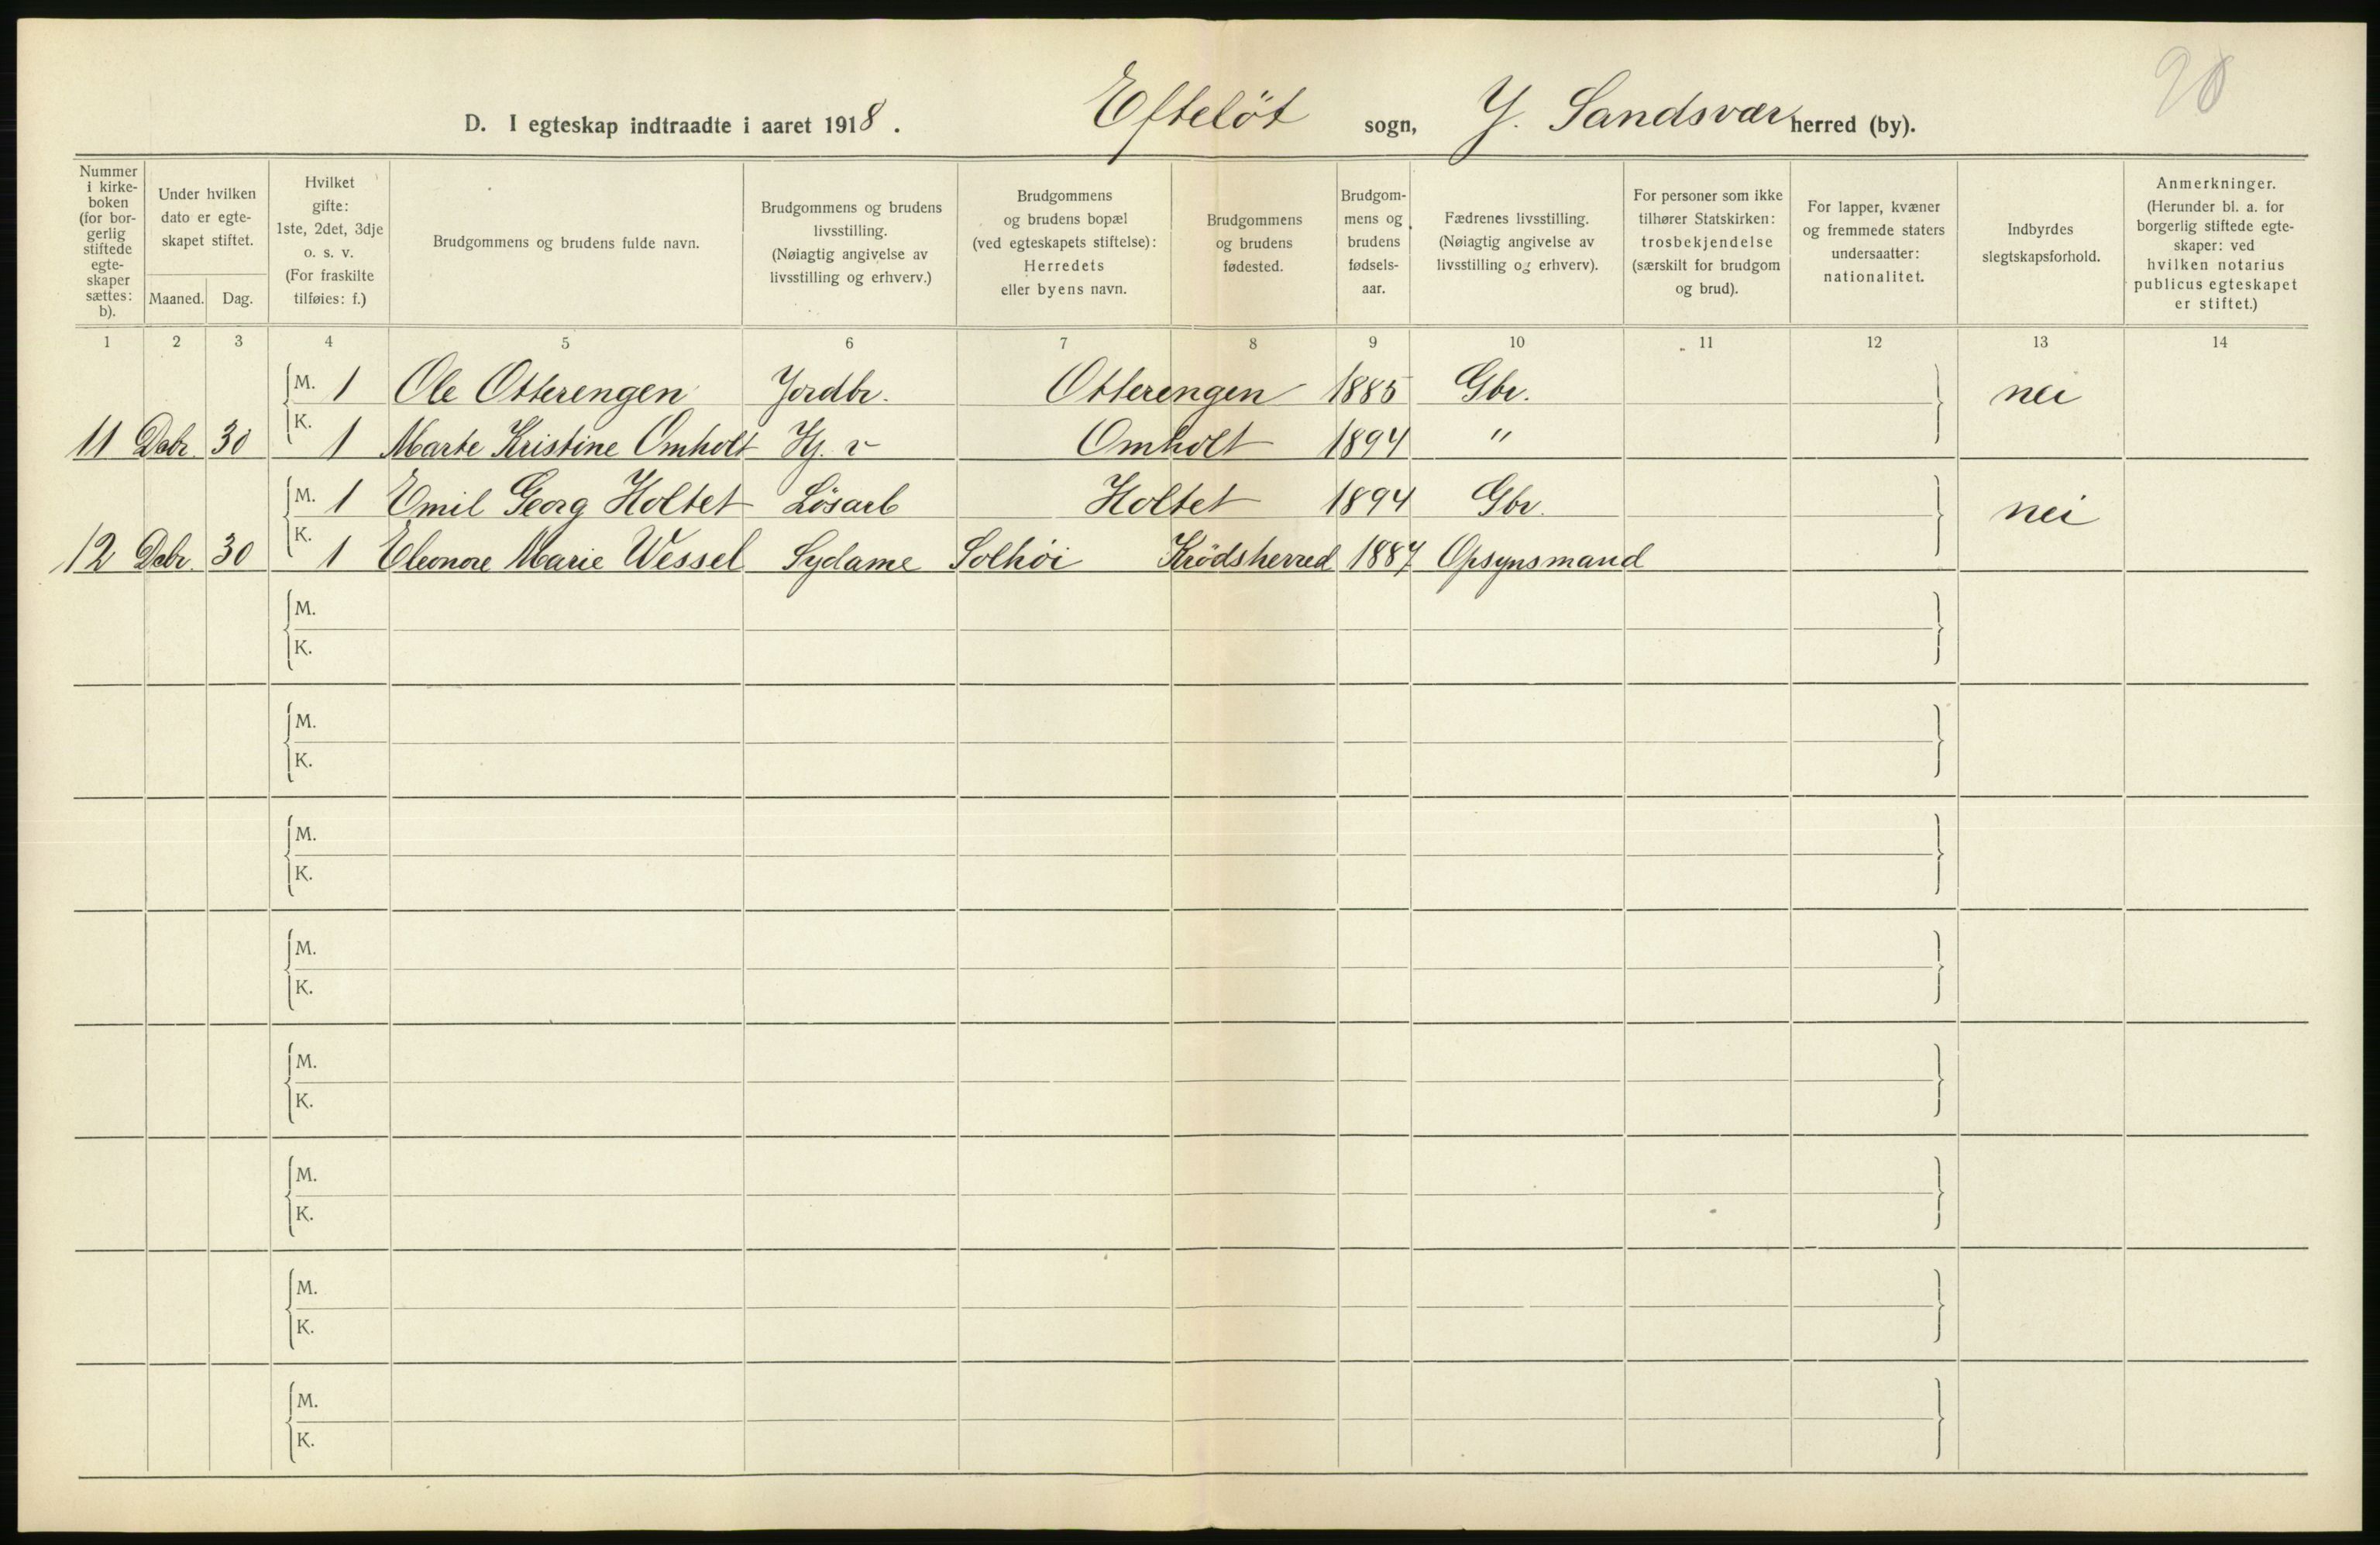 20
D. I egteskap indtraadte i aaret 1918. Efteløt sogn, Y. Sandsvær herred (by).
Nummer i kirke- boken (for bor- gerlig stiftede egte- skaper sættes: b).
Under hvilken dato er egte- skapet stiftet.
Maaned. Dag.
Hvilket gifte: 1ste, 2det, 3dje o. s. v. (For fraskilte tilføies: f.)
Brudgommens og brudens fulde navn.
Brudgommens og brudens livsstilling. (Nøiagtig angivelse av livsstilling og erhverv.)
Brudgommens og brudens bopæl (ved egteskapets stiftelse): Herredets eller byens navn.
Brudgommens og brudens fødested.
Brudgom- mens og brudens fødsels- aar.
Fædrenes livsstilling. (Nøiagtig angivelse av livsstilling og erhverv).
For personer som ikke tilhører Statskirken: trosbekjendelse (særskilt for brudgom og brud).
For lapper, kvæner og fremmede staters undersaatter: nationalitet.
Indbyrdes slegtskapsforhold.
Anmerkninger. (Herunder bl. a. for borgerlig stiftede egte- skaper: ved hvilken notarius publicus egteskapet er stiftet.)
1 2 3 4 5 6 7 8 9 10 11 12 13 14
M. 1 Ole Otterengen Jordbr. Otterengen 1885 Gbr. nei
11 Debr. 30 K. 1 Marte Kristine Omholt Hj. v Omholt 1894 "
M. 1 Emil Georg Holtet Løsarb Holtet 1894 Gbr. nei
12 Debr. 30 K. 1 Eleonore Marie Wessel Sydame Solhøi Krödsherred 1887 Opsynsmand
M.
K.
M.
K.
M.
K.
M.
K.
M.
K.
M.
K.
M.
K.
M.
K.